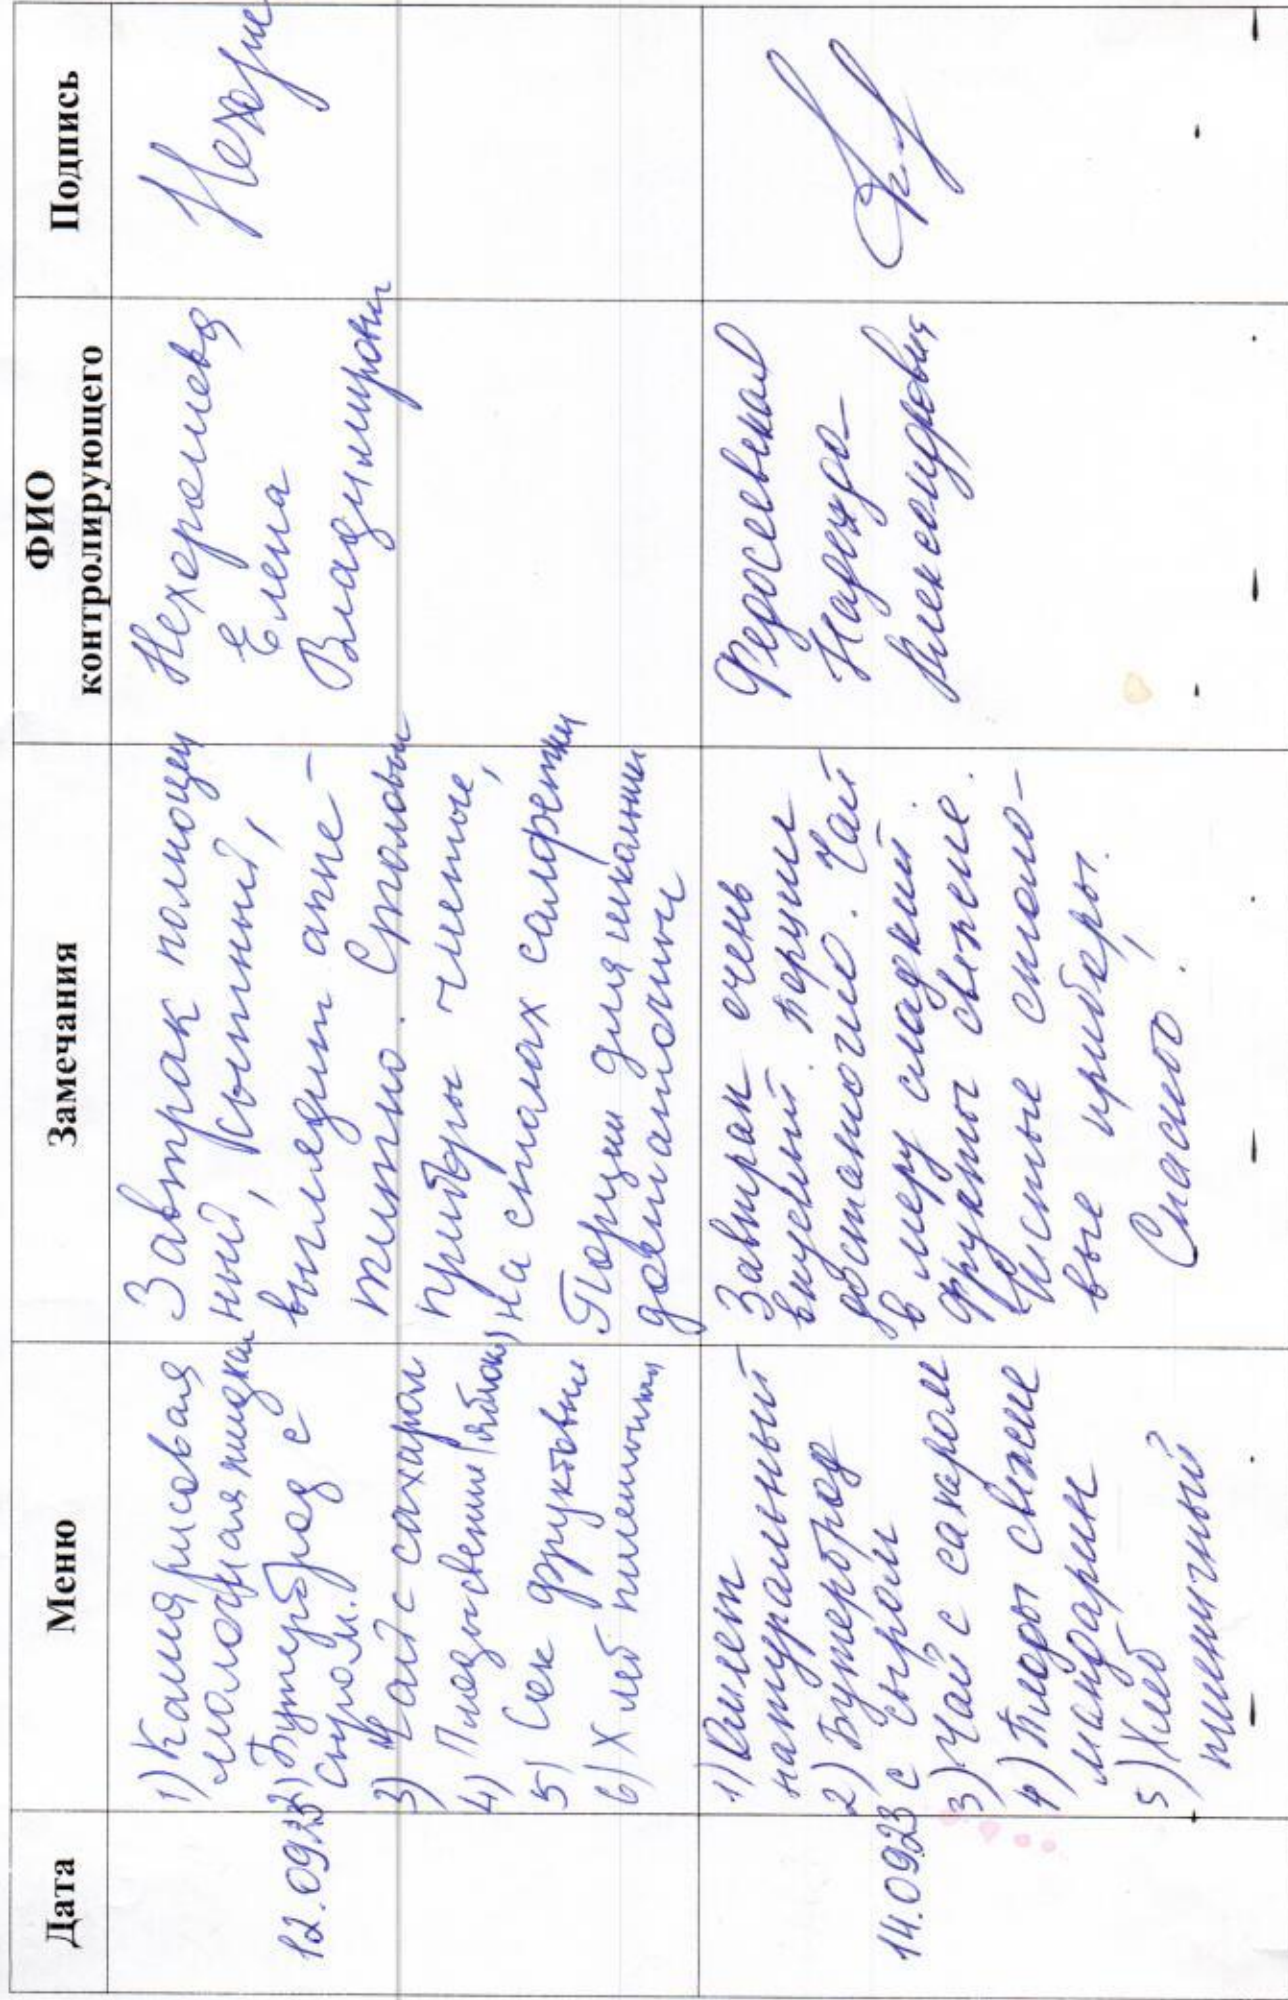 Дата
Меню
Замечания
ФИО
контролирующего
Подпись
12.09.23
1) Каша рисовая
молочная жидкая
2) Бутерброд с
сыром.
3) Чай с сахаром
4) Плоды свежие (яблоки)
5) Сок фруктовый
6) Хлеб пшеничный
Завтрак полноцен
ный, сытный,
выглядит аппе-
титно. Столовые
приборы чистые,
на столах салфетки
Порции для школьников
достаточны
Елена
Владимировна
14.0923
1) Омлет
натуральный
2) Бутерброд
с сыром
3) Чай с сахаром
4) Плоды свежие
мандарин
5) Хлеб
пшеничный
Завтрак очень
вкусный. порции
достаточно. Чай
в меру сладкий.
Фрукты свежие.
Чистые столо-
вые приборы.
Спасибо.
Федосеевская
Надежда
Александровна